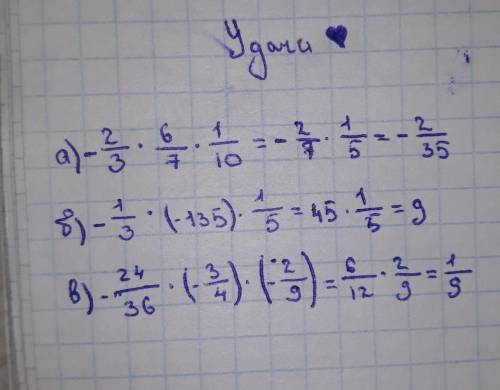 Удачи ♥
а) -2/3 · 6/7 · 1/10 = -2/7 · 1/5 = -2/35
б) -1/3 · (-135) · 1/5 = 45 · 1/5 = 9
в) -24/36 · (-3/4) · (-2/9) = 6/12 · 2/9 = 1/9